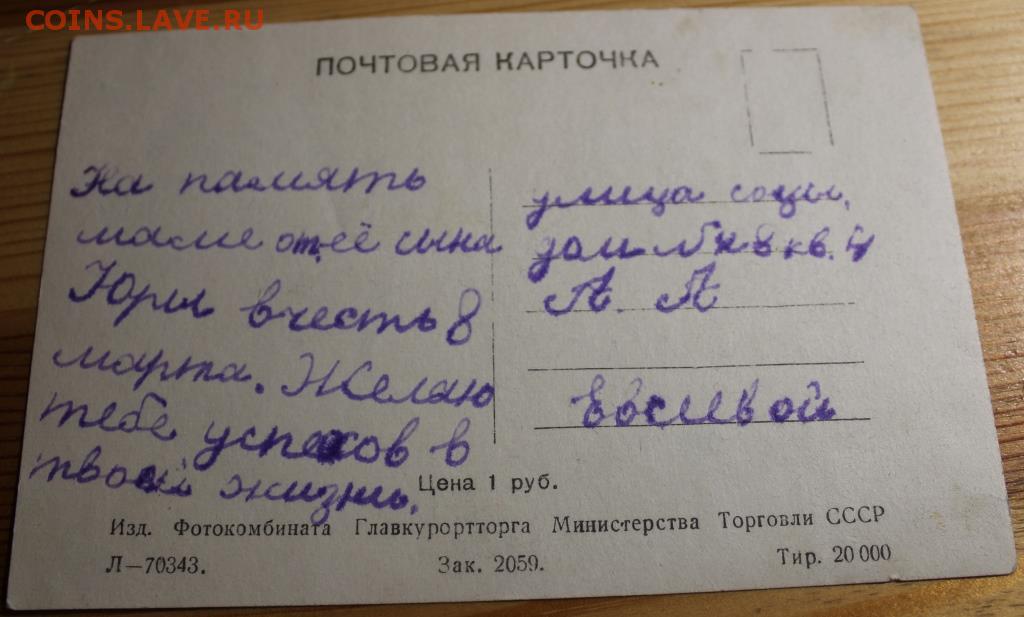 COINS.LAVE.RU
ПОЧТОВАЯ КАРТОЧКА
На память
маме от её сына
Юры в честь 8
марта. Желаю
тебе успехов в
твоей жизни.
улица соци.
дом № 8 кв. 4
А. А
Евсиевой
Цена 1 руб.
Изд. Фотокомбината Главкурортторга Министерства Торговли СССР
Л—70343. Зак. 2059. Тир. 20 000